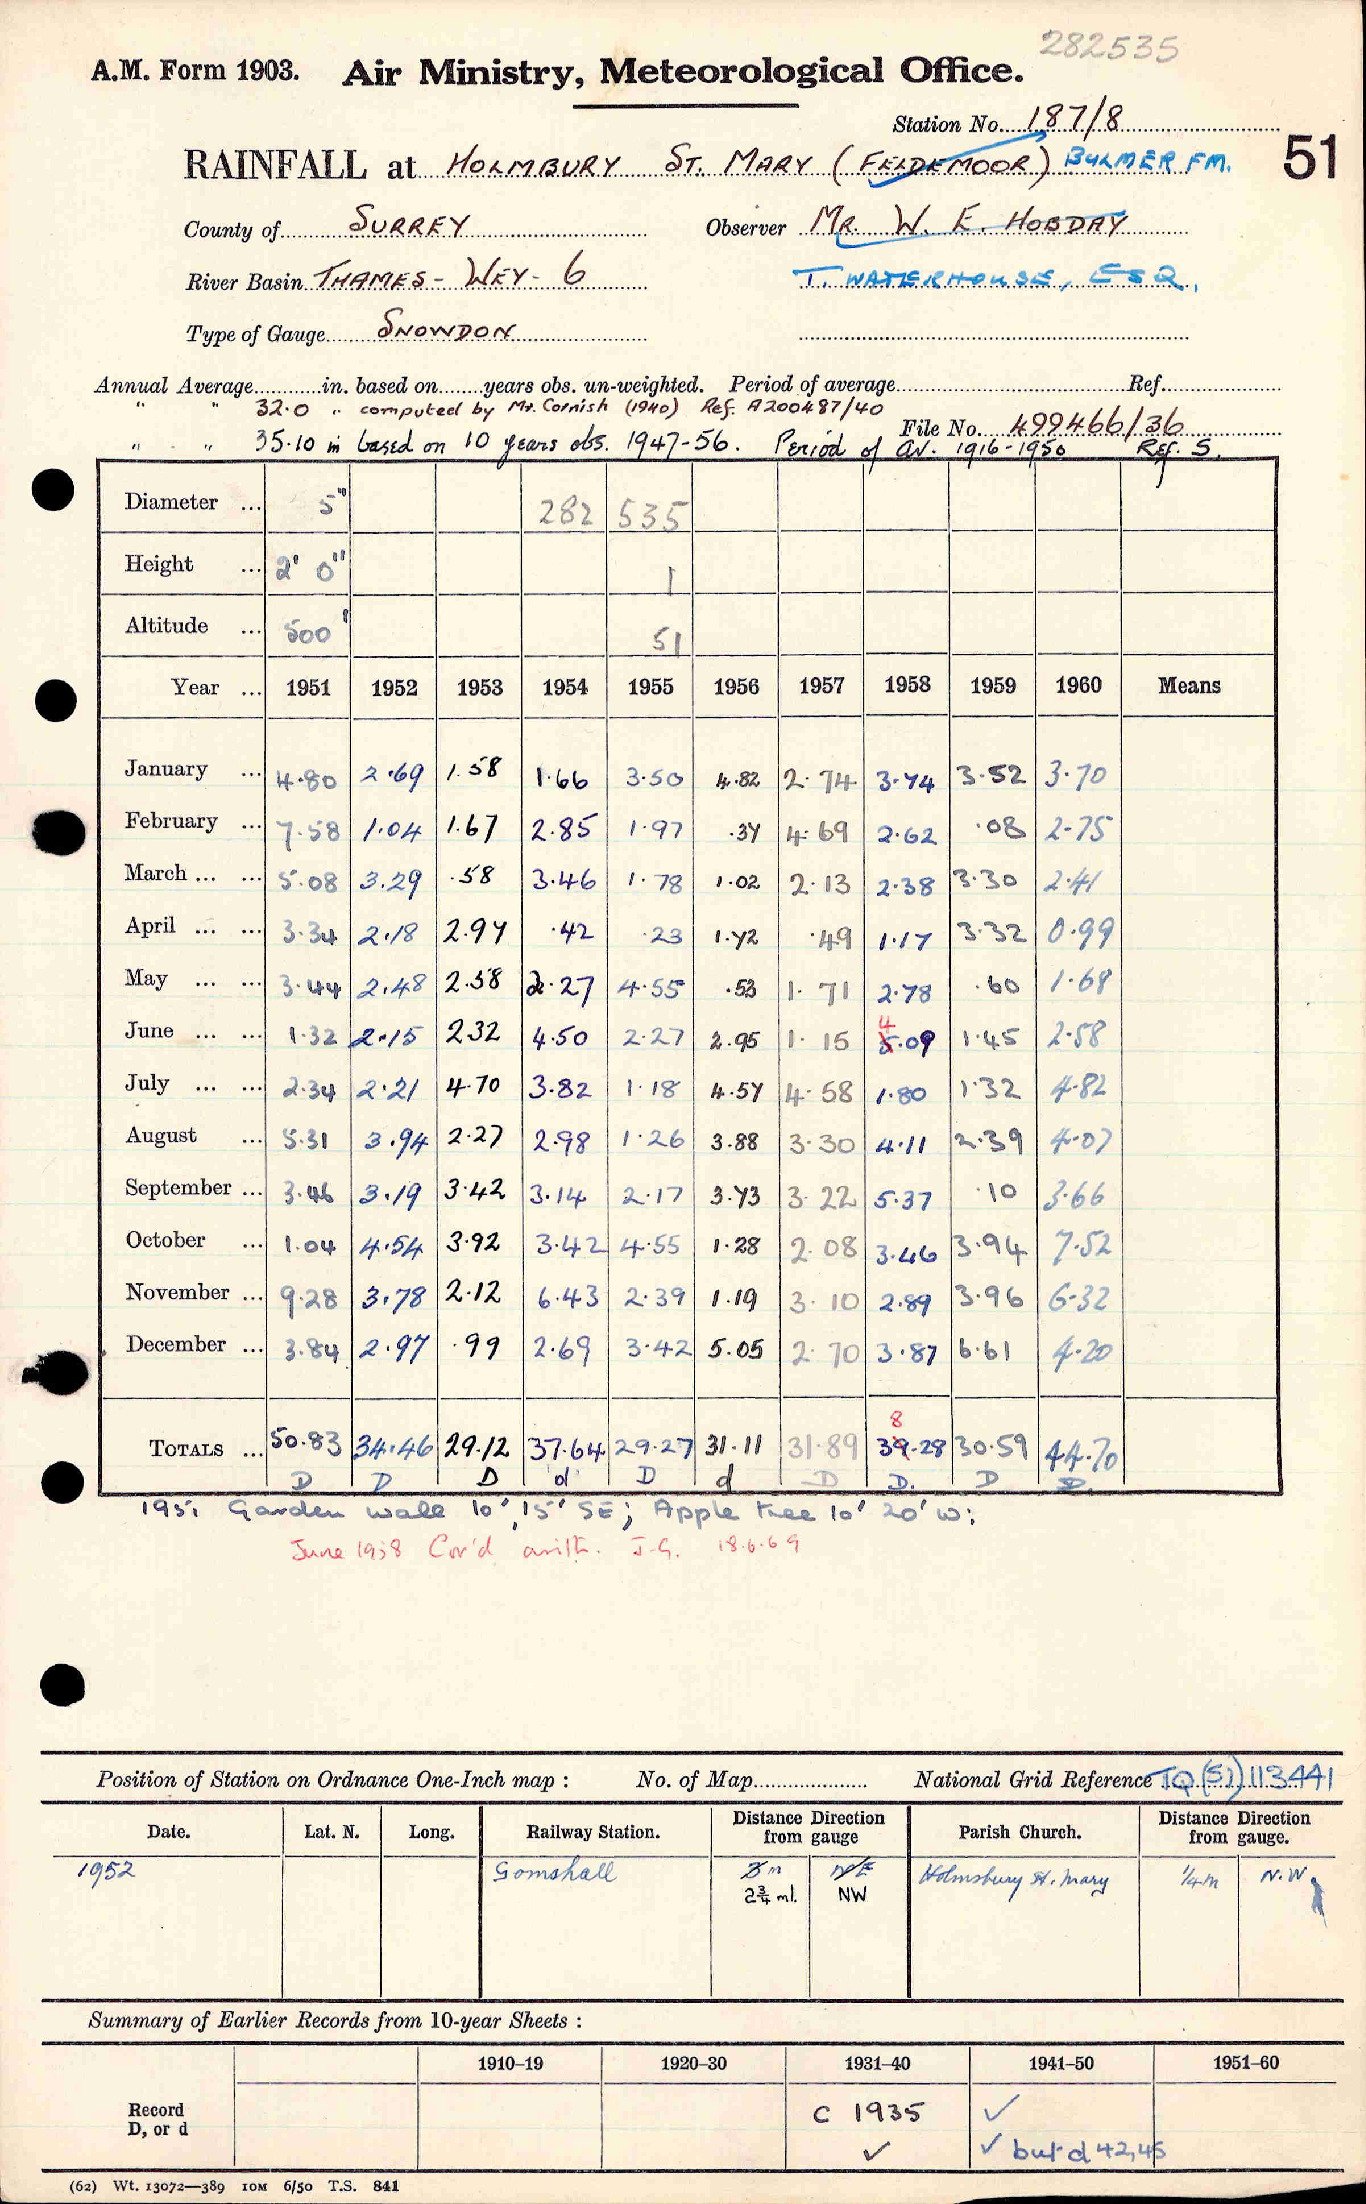 282535
A.M. Form 1903. Air Ministry, Meteorological Office.
Station No. 187/8
RAINFALL at HOLMBURY ST. MARY (FELDEMOOR) BULMER FM. 51
County of SURREY Observer MR. W. E. HOBDAY
River Basin THAMES - WEY - 6 T. WATERHOUSE, ESQ.
Type of Gauge SNOWDON
Annual Average in. based on years obs. un-weighted. Period of average Ref.
" " 32.0 " computed by Mr. Cornish (1940) Ref. A200487/40 File No. 499466/36
" " 35.10 in based on 10 years obs. 1947-56. Period of av. 1916-1950 Ref. S.
Diameter ... 5" 282 535
Height ... 2' 0" 1
Altitude ... 500' 51
Year ... 1951 1952 1953 1954 1955 1956 1957 1958 1959 1960 Means
January ... 4.80 2.69 1.58 1.66 3.50 4.82 2.74 3.74 3.52 3.70
February ... 7.58 1.04 1.67 2.85 1.97 .37 4.69 2.62 .08 2.75
March ... ... 5.08 3.29 .58 3.46 1.78 1.02 2.13 2.38 3.30 2.41
April ... ... 3.34 2.18 2.97 .42 .23 1.72 .49 1.17 3.32 0.99
May ... ... 3.44 2.48 2.58 2.27 4.55 .53 1.71 2.78 .60 1.68
4
June ... ... 1.32 2.15 2.32 4.50 2.27 2.95 1.15 5.09 1.45 2.58
July ... ... 2.34 2.21 4.70 3.82 1.18 4.57 4.58 1.80 1.32 4.82
August ... 5.31 3.94 2.27 2.98 1.26 3.88 3.30 4.11 2.39 4.07
September ... 3.46 3.19 3.42 3.14 2.17 3.73 3.22 5.37 .10 3.66
October ... 1.04 4.54 3.92 3.42 4.55 1.28 2.08 3.46 3.94 7.52
November ... 9.28 3.78 2.12 6.43 2.39 1.19 3.10 2.89 3.96 6.32
December ... 3.84 2.97 .99 2.69 3.42 5.05 2.70 3.87 6.61 4.20
8
TOTALS ... 50.83 34.46 29.12 37.64 29.27 31.11 31.89 39.28 30.59 44.70
D D D d D d D D. D D
1951 Garden wall 10', 15' SE; Apple tree 10' 20' W;
June 1958 Cor'd arith. J.G. 18.6.69
Position of Station on Ordnance One-Inch map : No. of Map National Grid Reference TQ (51) 113441
Date. Lat. N. Long. Railway Station. Distance from gauge Direction Parish Church. Distance Direction from gauge.
1952 Gomshall 3m NE Holmsbury St. Mary 1/4m N.W.
2 3/4 ml. NW
Summary of Earlier Records from 10-year Sheets :
1910–19 1920–30 1931–40 1941–50 1951–60
Record C 1935 ✓
D, or d ✓ ✓ but d 42,45
(62) Wt. 13072—389 10M 6/50 T.S. 841